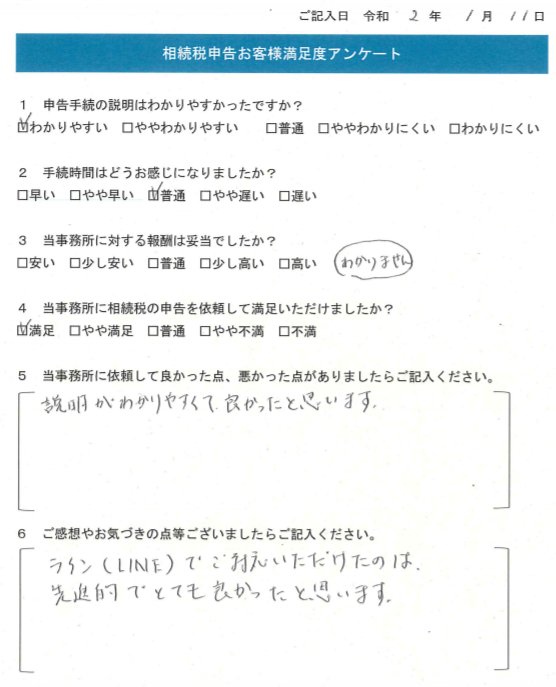 ご記入日 令和 2 年 1 月 11 日
相続税申告お客様満足度アンケート
1 申告手続の説明はわかりやすかったですか？
☑わかりやすい □ややわかりやすい □普通 □ややわかりにくい □わかりにくい
2 手続時間はどうお感じになりましたか？
□早い □やや早い ☑普通 □やや遅い □遅い
3 当事務所に対する報酬は妥当でしたか？
□安い □少し安い □普通 □少し高い □高い わかりません
4 当事務所に相続税の申告を依頼して満足いただけましたか？
☑満足 □やや満足 □普通 □やや不満 □不満
5 当事務所に依頼して良かった点、悪かった点がありましたらご記入ください。
説明がわかりやすくて良かったと思います。
6 ご感想やお気づきの点等ございましたらご記入ください。
ライン(LINE)でご対応いただけたのは、
先進的でとても良かったと思います。